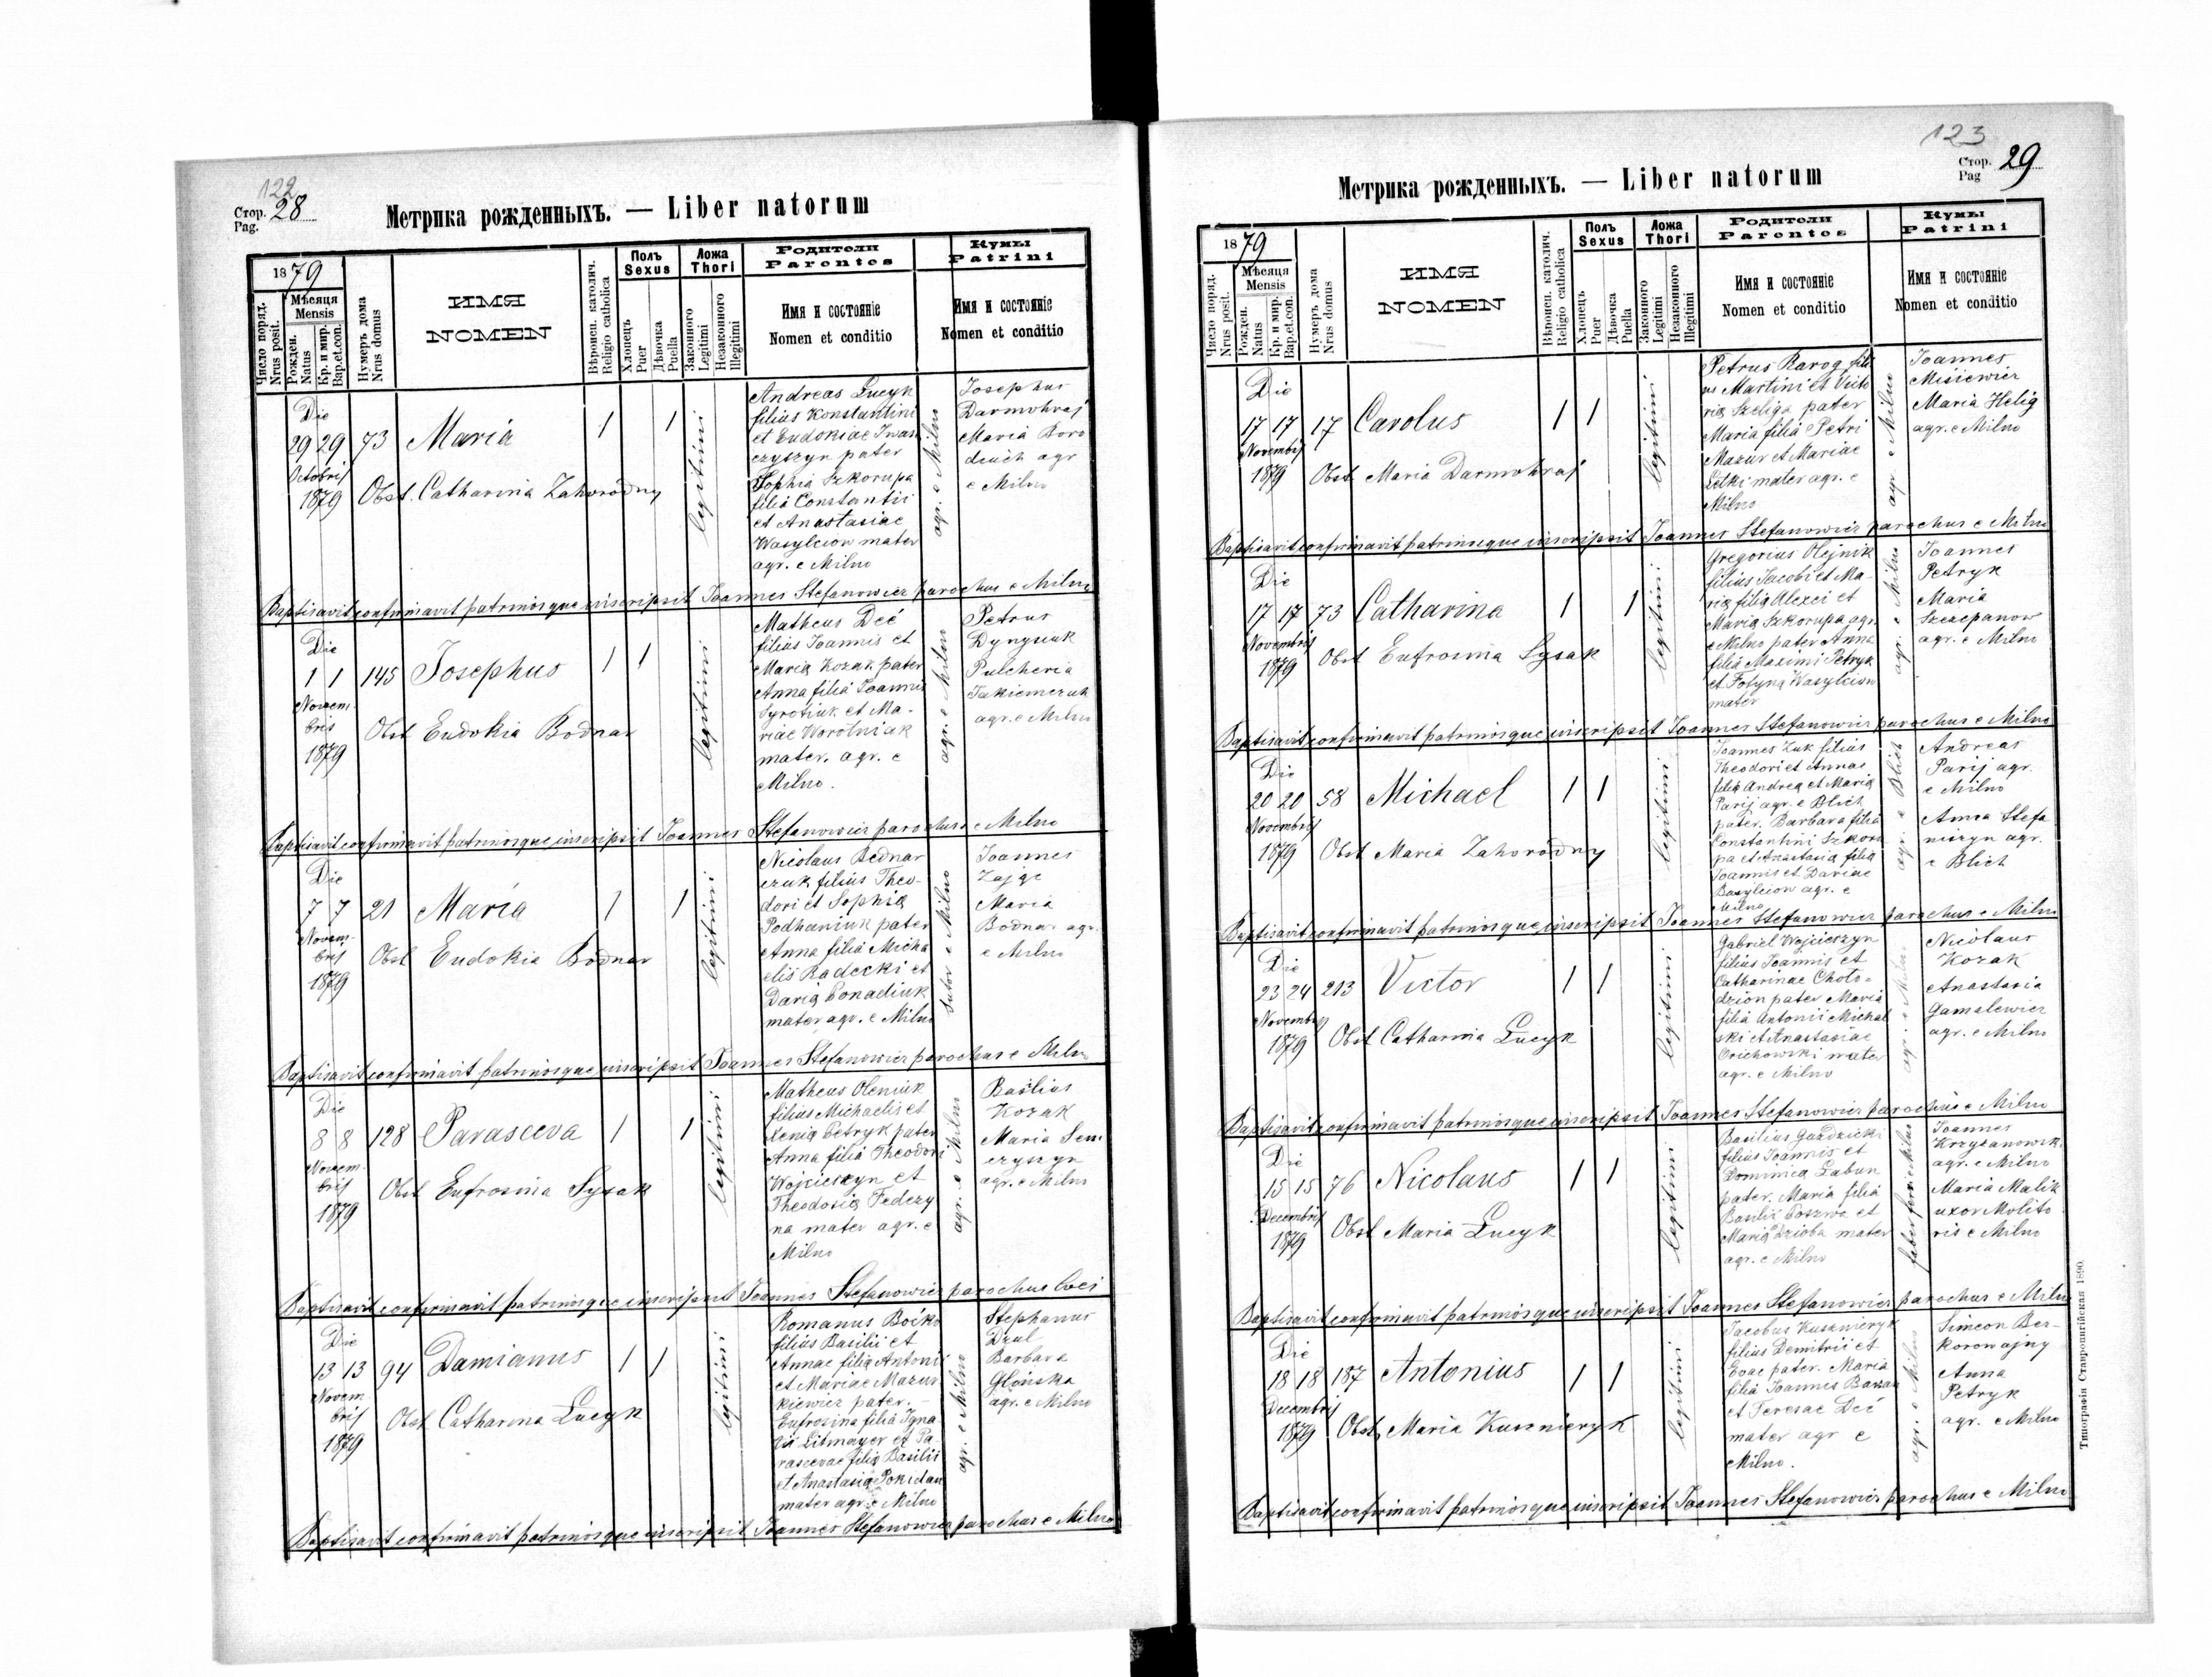 122
Стор. 28
Pag.
Метрика рожденныхъ. — Liber natorum
1879
Число поряд.
Nrus posit.
Мѣсяця
Mensis
Рожден.
Natus
Кр. и мир.
Bap.et.con.
Нумеръ дома
Nrus domus
ИМЯ
NOMEN
Вѣроисп. католич.
Religio catholica
Полъ
Sexus
Хлопецъ
Puer
Дѣвочка
Puella
Ложа
Thori
Законного
Legitimi
Незаконного
Illegitimi
Родители
Parentes
Имя и состояніе
Nomen et conditio
Кумы
Patrini
Имя и состояніе
Nomen et conditio
Die
29 29 73 Maria 1 1
Octobris
1879 Obst. Catharina Zahorodny
legitimi
Andreas Lucyk
filius Konstantini
et Eudokiae Iwas
czyszyn pater
Sophia Szkorupa
filia Constantii
et Anastasiae
Wasylciow mater
agr. e Milno
agr. e Milno
Josephus
Darmohraj
Maria Boro
duch agr
e Milno
Baptisavit confirmavit patrinosque inscripsit Joannes Stefanowicz parochus e Milno
Die
1 1 145 Josephus 1 1
Novem-
bris
1879
Obst Eudokia Bodnar
legitimi
Matheus Deć
filius Joannis et
Maria Kozak pater
Anna filia Joannis
Syrotiuk et Ma-
riae Worotniak
mater. agr. e
Milno.
agr. e Milno
Petrus
Dynysiuk
Pulcheria
agr. e Milno
Baptisavit confirmavit patrinosque inscripsit Joannes Stefanowicz parochus e Milno
Die
7 7 21 Maria 1 1
Novem-
bris
1879
Obst Eudokia Bodnar
legitimi
Nicolaus Bednar
czuk filius Theo-
dori et Sophia
Podhaniuk pater
Anna filia Micha
elis Radecki et
Daria Ponadiuk
mater agr. e Milno
sutor e Milno
Joannes
Zając
Maria
Bodnar agr.
e Milno
Baptisavit confirmavit patrinosque inscripsit Joannes Stefanowicz parochus e Milno
Die
8 8 128 Parasceva 1 1
Novem-
bris
1879
Obst Eufrosina Sysak
legitimi
Matheus Oleniuk
filius Michaelis et
Xenia Petryk pater
Anna filia Theodori
Wojcieszyn et
Theodosia Federy
na mater agr. e
Milno
agr. e Milno
Basilius
Kozak
Maria Sem
czyszyn
agr. e Milno
Baptisavit confirmavit patrinosque inscripsit Joannes Stefanowicz parochus loci
Die
13 13 94 Damianus 1 1
Novem
bris
1879
Obst Catharina Lucyk
legitimi
Romanus Boćko
filius Basilii et
Annae filia Antonii
et Mariae Mazur
kiewicz pater. -
Eufrosina filia Igna
tii Litmayer et Pa
rascevae filia Basilii
et Anastasia Pokidan
mater agr. e Milno
agr. e Milno
Stephanus
Dzul
Barbara
Glońska
agr. e Milno
Baptisavit confirmavit patrinosque inscripsit Joannes Stefanowicz parochus e Milno
123
Стор. 29
Pag
Метрика рожденныхъ. — Liber natorum
1879
Число поряд.
Nrus posit.
Мѣсяця
Mensis
Рожден.
Natus
Кр. и мир.
Bap.et.con.
Нумеръ дома
Nrus domus
ИМЯ
NOMEN
Вѣроисп. католич.
Religio catholica
Полъ
Sexus
Хлопецъ
Puer
Дѣвочка
Puella
Ложа
Thori
Законного
Legitimi
Незаконного
Illegitimi
Родители
Parentes
Имя и состояніе
Nomen et conditio
Кумы
Patrini
Имя и состояніе
Nomen et conditio
Die
17 17 17 Carolus 1 1
Novembris
1879 Obst Maria Darmohraj
legitimi
Petrus Rarog fili
us Martini et Victo
ria Szeliga pater
Maria filia Petri
Mazur et Mariae
Letki mater agr. e
Milno
agr. e Milno
Joannes
Misiewicz
Maria Helig
agr. e Milno
Baptisavit confirmavit patrinosque inscripsit Joannes Stefanowicz parochus e Milno
Die
17 17 73 Catharina 1 1
Novembris
1879 Obst Eufrosina Sysak
legitimi
Gregorius Olejnik
filius Jacobi et Ma-
ria filia Alexei et
Maria Szkorupa agr.
e Milno pater Anna
filia Maximi Petryk
et Fotyna Wasylciow
mater
agr. e Milno
Joannes
Petryk
Maria
Szczepanow
agr. e Milno
Baptisavit confirmavit patrinosque inscripsit Joannes Stefanowicz parochus e Milno
Die
20 20 58 Michael 1 1
Novembris
1879 Obst Maria Zahorodny
legitimi
Joannes Zuk filius
Theodori et Annae
filia Andrea et Maria
Parij agr. e Blich
pater. Barbara filia
Constantini Szkoru
pa et Anastasia filia
Joannis et Dariae
Wasylciow agr. e
Milno
agr. e Blich
Andreas
Parij agr.
e Milno
Anna Stefa
niszyn agr.
e Blich
Baptisavit confirmavit patrinosque inscripsit Joannes Stefanowicz parochus e Milno
Die
23 24 213 Victor 1 1
Novembris
1879 Obst Catharina Lucyk
legitimi
Gabriel Wojcieszyn
filius Joannis et
Catharinae Choło-
dzion pater Maria
filia Antonii Michal
ski et Anastasiae
Orichowski mater
agr. e Milno
agr. e Milno
Nicolaus
Kozak
Anastasia
Gamalewicz
agr. e Milno
Baptisavit confirmavit patrinosque inscripsit Joannes Stefanowicz parochus e Milno
Die
15 15 76 Nicolaus 1 1
Decembris
1879
Obst Maria Lucyk
legitimi
Basilius Gazdzicki
filius Joannis et
Dominica Labun
pater. Maria filia
Basilii Poszwa et
Maria Dzioba mater
agr. e Milno
faber ferri e Milno
Joannes
Krzyżanowsk.
agr. e Milno
Maria Malik
uxor Molito
ris e Milno
Baptisavit confirmavit patrinosque inscripsit Joannes Stefanowicz parochus e Milno
Die
18 18 187 Antonius 1 1
Decembris
1879 Obst. Maria Kusznieryk
legitimi
Jacobus Kusznieryk
filius Demitrii et
Evae pater. Maria
filia Joannis Baran
et Teresae Deć
mater agr e
Milno.
agr. e Milno
Simeon Ber-
korowajny
Anna
Petryk
agr. e Milno
Baptisavit confirmavit patrinosque inscripsit Joannes Stefanowicz parochus e Milno
Типографія Ставропигійская 1890.